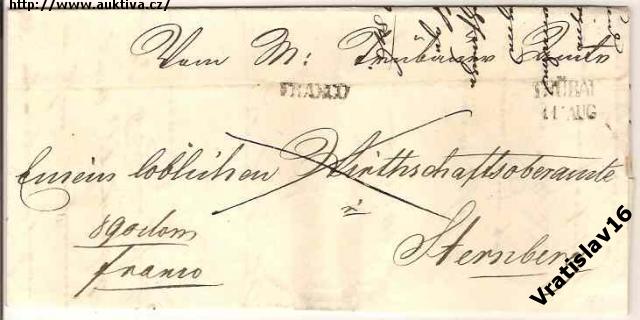 http://www.auktiva.cz/
Vom M: Trübauer Amte
FRANCO
TRÜBAU
11 AUG
Einem löblichen Wirthschaftsoberamte
z
Sternberg
franco
Vratislav16